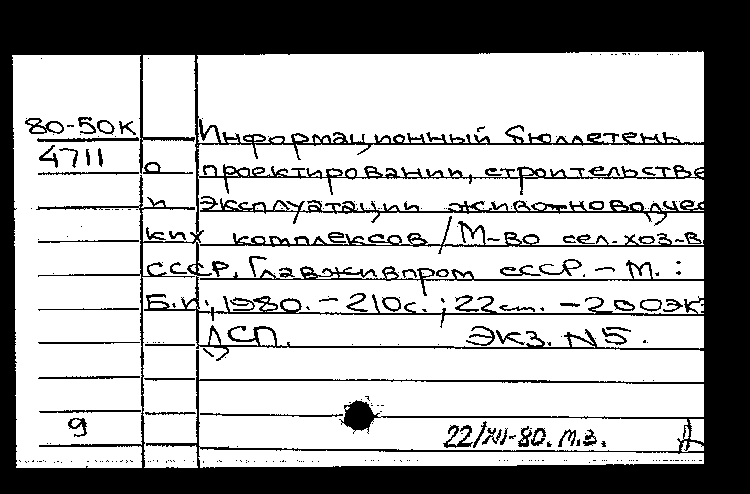 80-50К Информационный бюллетень
4711 о проектировании, строительстве
и эксплуатации животноводчес
ких комплексов / М-во сел.-хоз-в
СССР. Главживпром СССР. – М. :
Б.и., 1980. – 210с. ; 22см. – 200экз
ДСП. Экз. N5.
9 22/XII-80. т.з. А